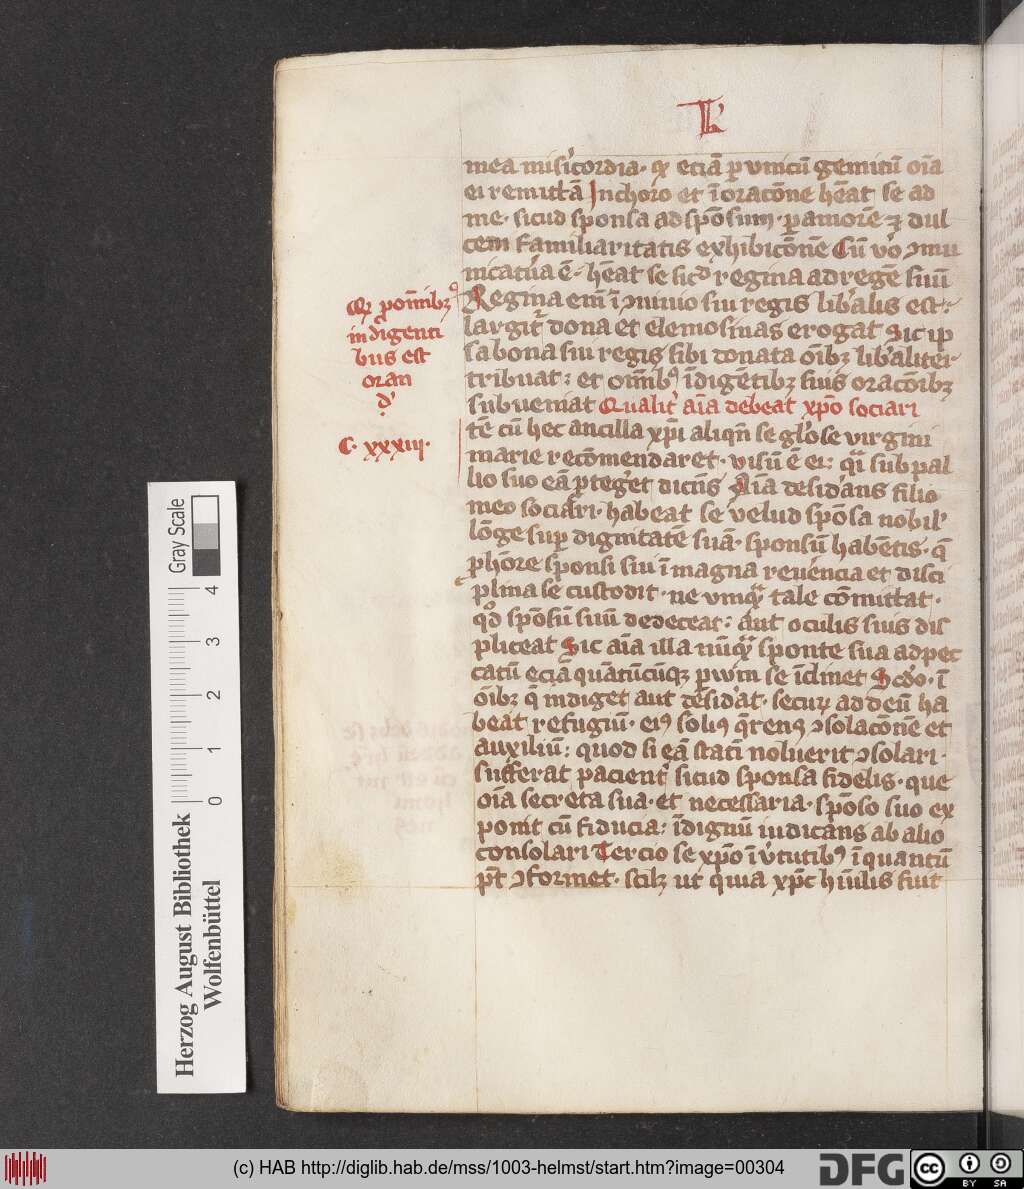 mea misicordia· ꝙ eciā p vnicū gemitū oīa
ei remittā Jn choro et ī oracōne hēat se ad
me· sicud sponsa ad spōsum· p amorē ⁊ dul
cem familiaritatis exhibicōnē Cū vo ꝯmu
nicatura ē· hēat se sicd regina ad regē suū
Regina em̄ ī ꝯuiuio sui regis lib'alis est·
largit' dona et elemosinas erogat Sic ip
sa bona sui regis sibi donata oībꝫ lib'aliter
tribuat: et omībꝰ īdigētibꝫ suis oracōibꝫ
subueniat Qualit' aīa debeat xp̄o sociari
tē cū hec ancilla xp̄i aliqn̄ se gl'ose virgini
marie recōmendaret· visū ē ei: qi sub pal
lio suo eā ꝓteg'et dicens Aīa desid'ans filio
meo sociari· habeat se velud spōsa nobil'
lōge sup dignitatē suā· sponsū habētis· q̄
p hōore sponsi sui ī magna reu'encia et disci
plina se custodit· ne vmqͣ tale cōmittat·
qd spōsū suū dedeceat: aut oculis suis dis
pliceat Sic aīa illa nūqͣ sponte sua ad pec
catū eciā quātūcūqꝫ pvm se īclinet Scdo· ī
oībꝫ q̄ indiget aut desid'at· secur' ad deū ha
beat refugiū· eiꝰ soliꝰ q̄rens ꝯsolacōnē et
auxiliū: quod si eā statī noluerit ꝯsolari·
sufferat pacient' sicud sponsa fidelis· que
oīa secreta sua· et necessaria· spōso suo ex
ponit cū fiducia: īdignū iudicans ab alio
consolari Tercio se xp̄o ī v'tutibꝰ ī quantū
pt̄ ꝯformet· scilꝫ ut quia xp̄c hūilis fuit
Qꝫ p omībꝫꝰ
indigenti
bus est
oran
d'
C· xxxiii·
Herzog August Bibliothek
Wolfenbüttel
Gray Scale
0 1 2 3 4
(c) HAB http://diglib.hab.de/mss/1003-helmst/start.htm?image=00304
DFG
cc
BY SA